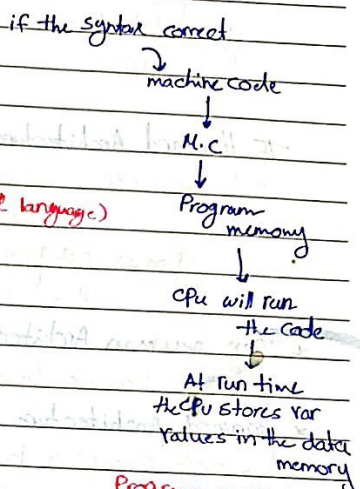 if the syntax correct
machine code
M.C
language)
Program
memory
CPU will run
the code
At run time
the CPU stores var
values in the data
memory